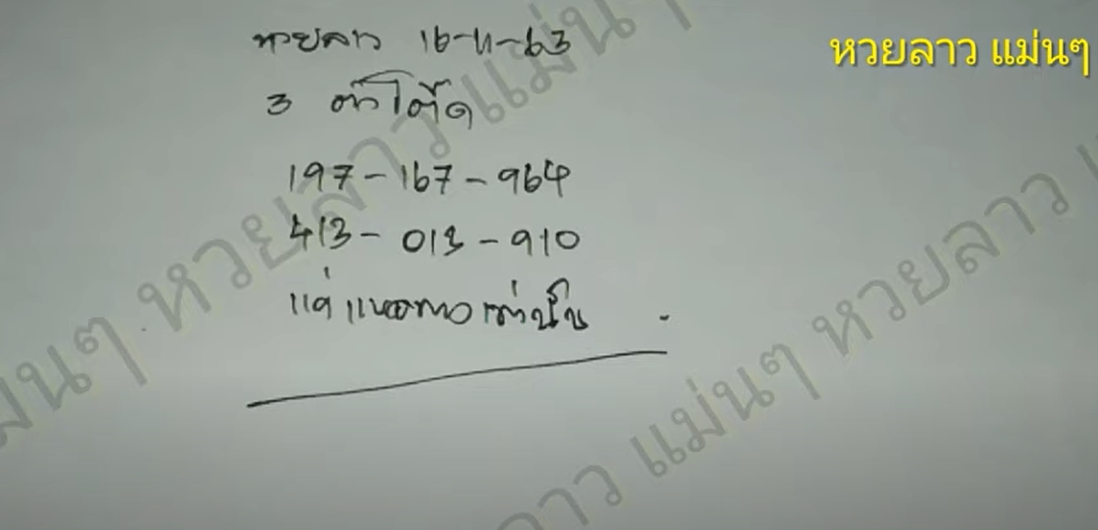 หวยลาว 16-11-63
หวยลาว แม่นๆ
3 ตัวโต๊ด
197-167-964
413-013-910
แค่แนวทางเท่านั้น
หวยลาว แม่นๆ
แม่นๆ หวยลาว แม่นๆ
แม่นๆ หวยลาว
ลาว แม่นๆ หวยลาว